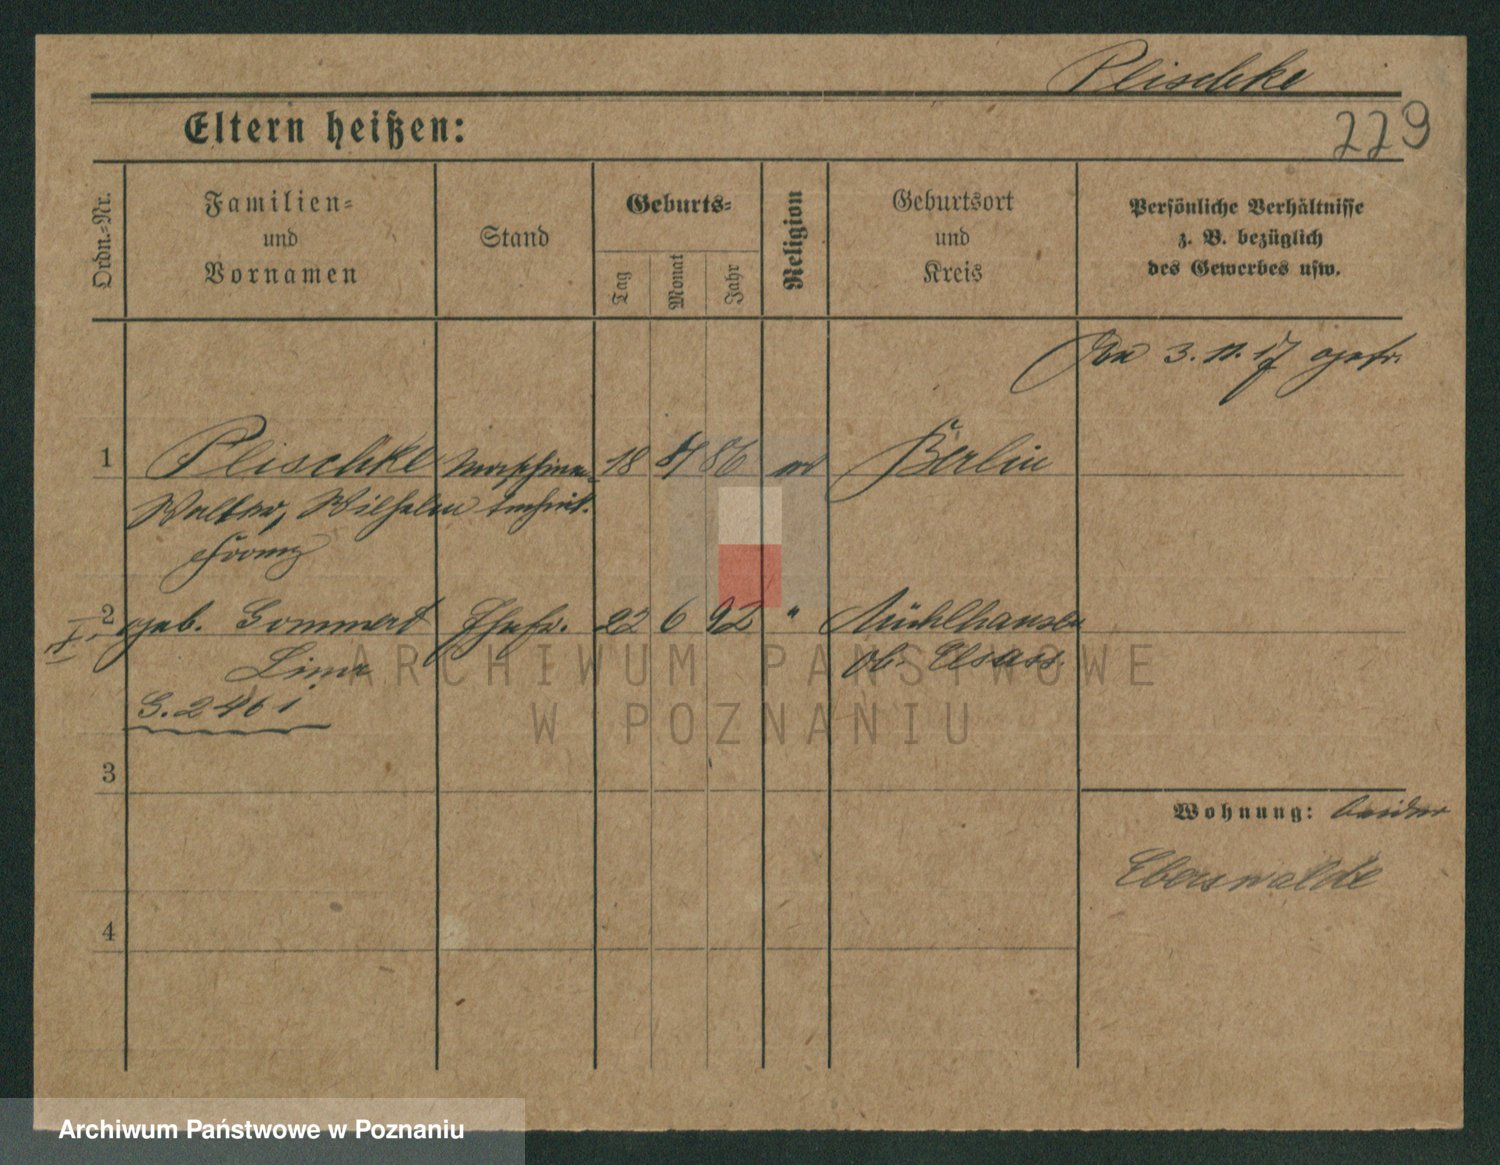 Plischke
Eltern heißen:
229
Ordn.-Nr.
Familien-
und
Vornamen
Stand
Geburts-
Tag
Monat
Jahr
Religion
Geburtsort
und
Kreis
Persönliche Verhältnisse
z. B. bezüglich
des Gewerbes usw.
3. 11. 17
1 Plischke Maschinen- 18 86 ev Berlin
Walter, Wilhelm
Franz
2 geb. Gommert Ehefr. 22 6 92 " Mühlhausen
Lina Ob. Elsass.
G. 2461
3
4
Wohnung: bisher
Eberswalde
ARCHIWUM PAŃSTWOWE
W POZNANIU
Archiwum Państwowe w Poznaniu